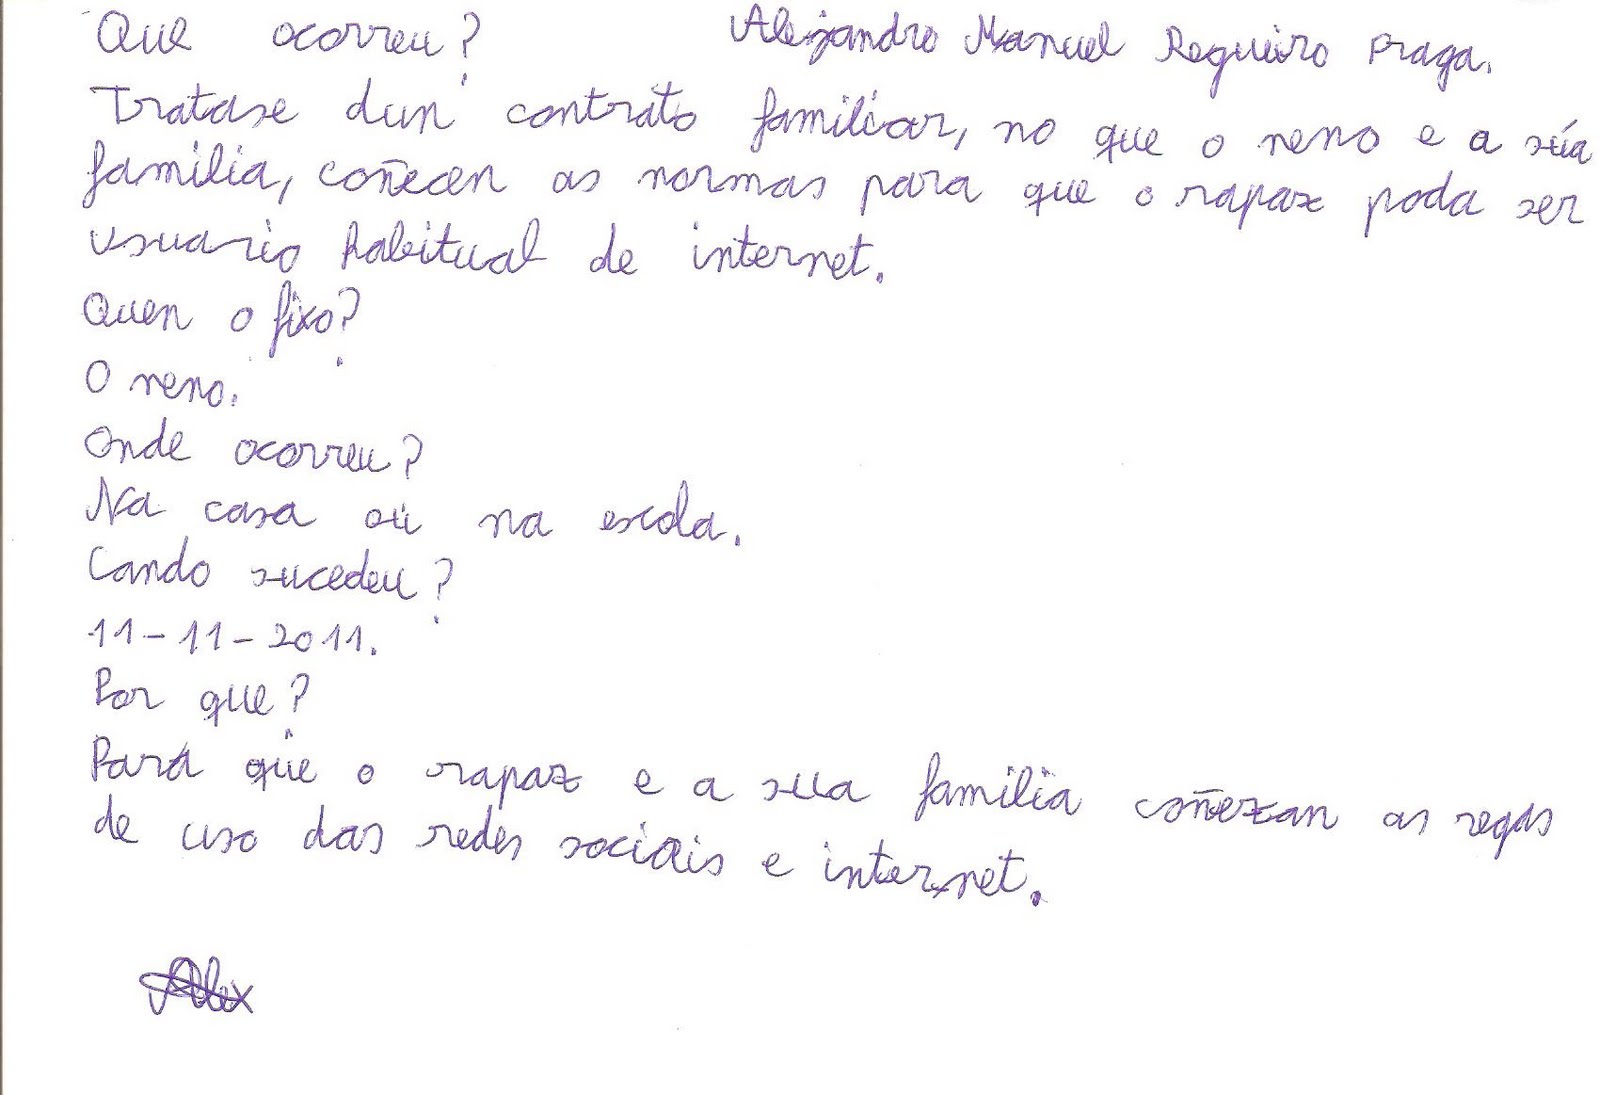 Que ocorreu? Alejandro Manuel Regueiro Praga.
Tratase dun contrato familiar, no que o neno e a súa
familia, coñecen as normas para que o rapaz poda ser
usuario habitual de internet.
Quen o fixo?
O neno.
Onde ocorreu?
Na casa ou na escola.
Cando sucedeu?
11-11-2011.
Por que?
Para que o rapaz e a sua familia coñezan as regas
de uso das redes sociais e internet.
Alex